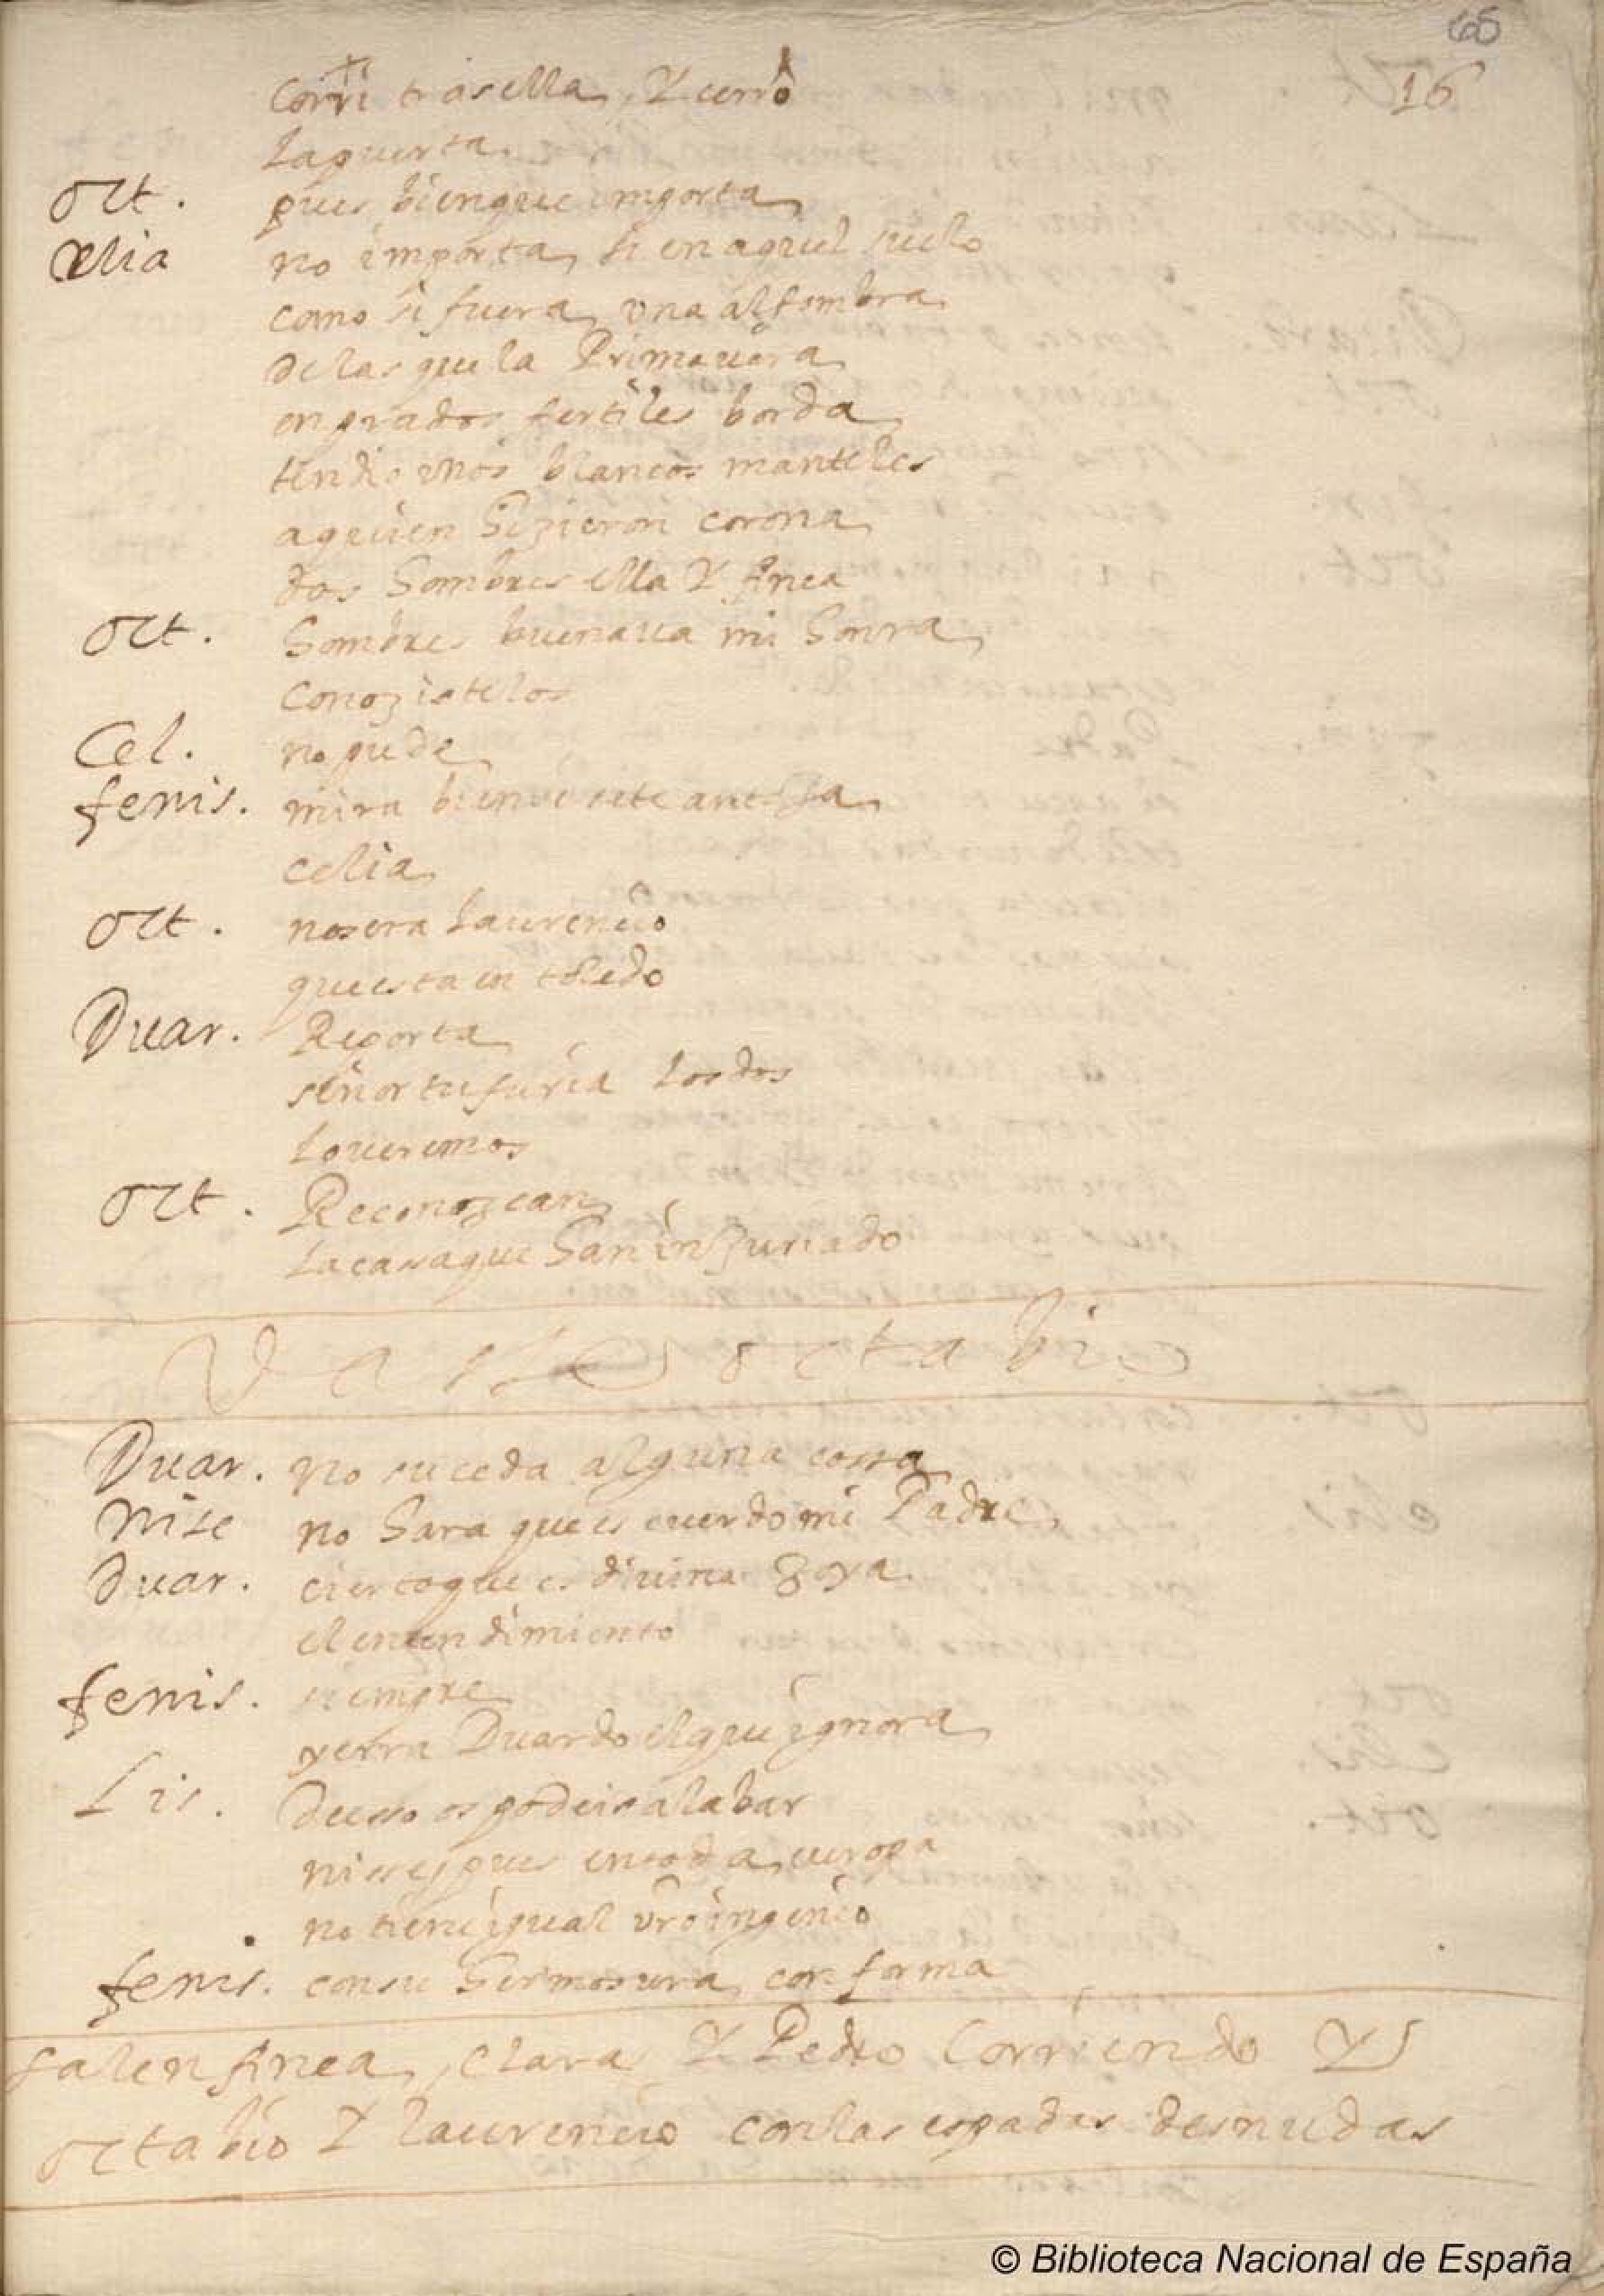 65
16
corri tras ella, y cerró
la puerta
Oct. pues bien que importa
Celia no importa, si en aquel suelo
como si fuera, una alfombra
de las que la Primauera
en prados fertiles borda
tendio unos blancos manteles
a quien hizieron corona
dos hombres ella y finea
Oct. hombres buena ua mi honra
conozistelos
Cel. no pude
fenis. mira bien si se te antoja
celia
Oct. no sera laurencio
que esta en toledo
Duar. Reporta
señor tu furia los dos
lo ueremos
Oct. Reconozcan
la casa que han injuriado
Vasse octabio
Duar. no suceda alguna cossa
Nise no hara que es cuerdo mi Padre
Duar. cierto que es diuina Joya
el entendimiento
fenis. siempre
yerra Duardo el que ignora
Lis. desso os podeis alabar
nise pues en toda, europa
no tiene igual vro ingenio
fenis. con su hermosura, conforma
salen finea, clara y Pedro corriendo y
octabio y laurencio con las espadas desnudas
© Biblioteca Nacional de España